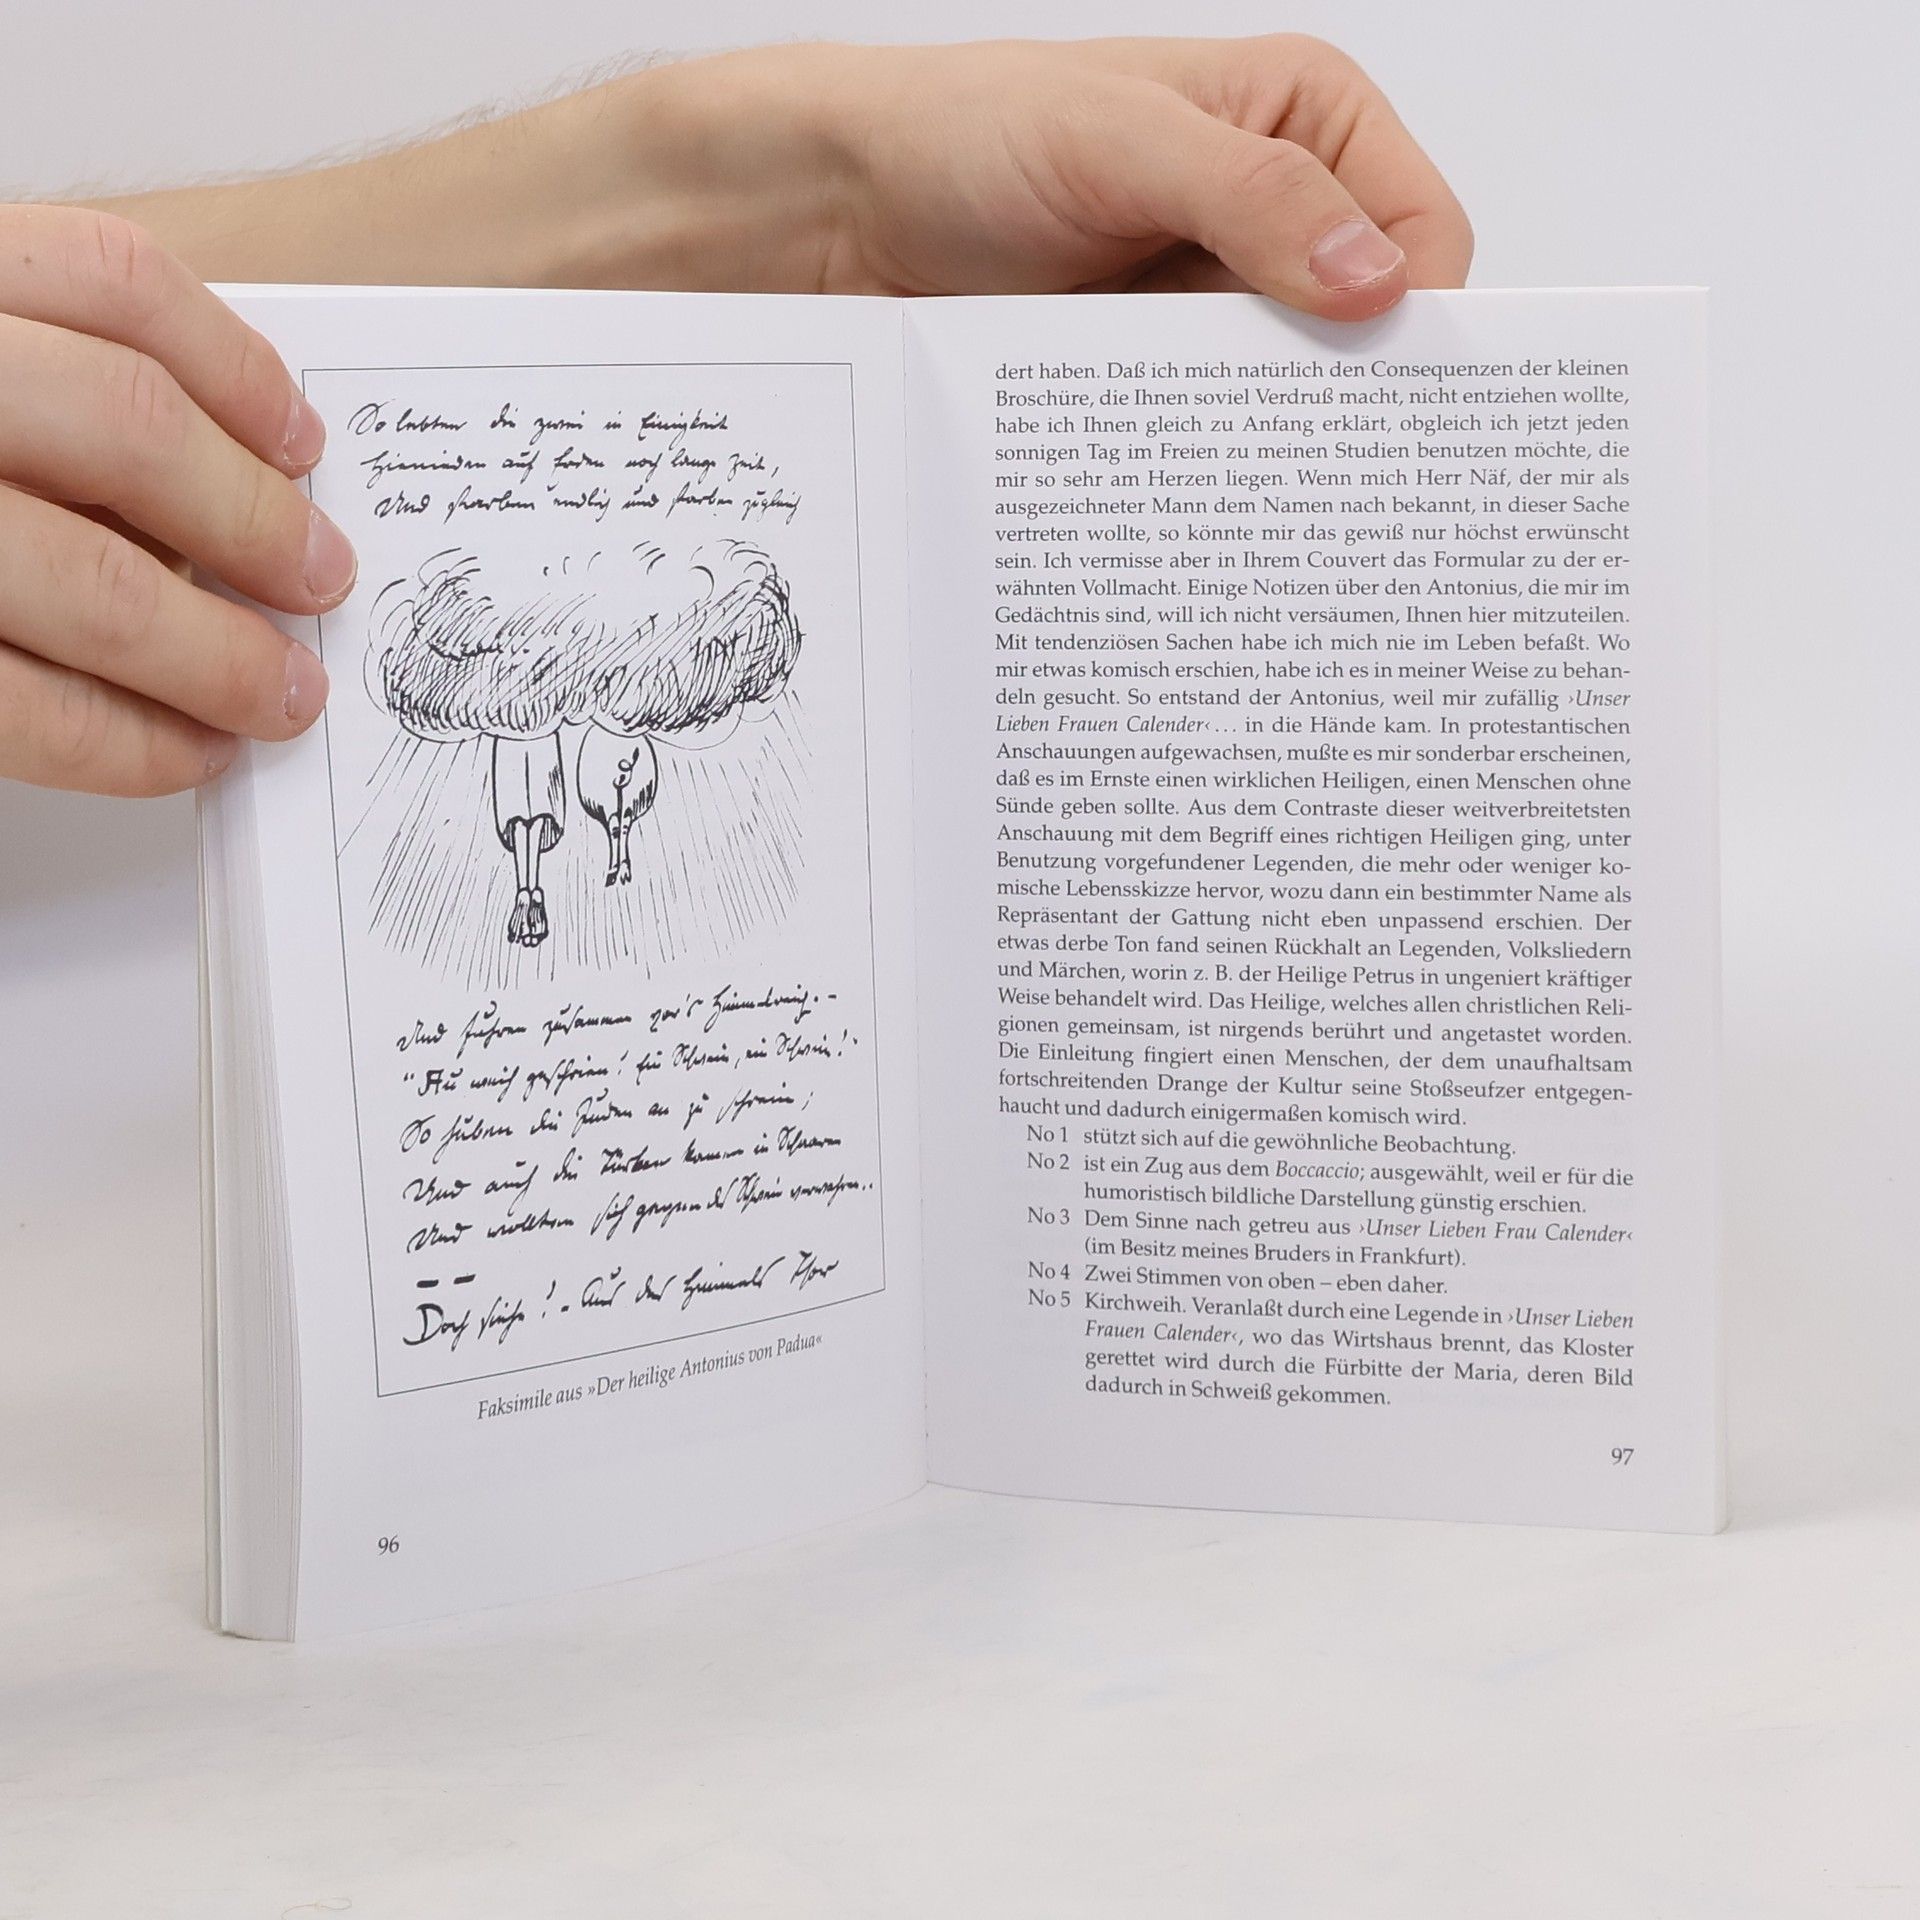 So lebten die zwei in Einigkeit
Hienieden auf Erden noch lange Zeit,
Und starben endlich und starben zugleich
Und fuhren zusammen vor's Himmelreich. –
"Au weih geschrien! Ein Schwein, ein Schwein!"
So huben die Juden an zu schrein;
Und auch die Türken kamen in Schaaren
Und wollten sich gegen das Schwein verwahren..
– –
Doch siehe! – Aus des Himmels Thor
Faksimile aus »Der heilige Antonius von Padua«
96
dert haben. Daß ich mich natürlich den Consequenzen der kleinen
Broschüre, die Ihnen soviel Verdruß macht, nicht entziehen wollte,
habe ich Ihnen gleich zu Anfang erklärt, obgleich ich jetzt jeden
sonnigen Tag im Freien zu meinen Studien benutzen möchte, die
mir so sehr am Herzen liegen. Wenn mich Herr Näf, der mir als
ausgezeichneter Mann dem Namen nach bekannt, in dieser Sache
vertreten wollte, so könnte mir das gewiß nur höchst erwünscht
sein. Ich vermisse aber in Ihrem Couvert das Formular zu der er-
wähnten Vollmacht. Einige Notizen über den Antonius, die mir im
Gedächtnis sind, will ich nicht versäumen, Ihnen hier mitzuteilen.
Mit tendenziösen Sachen habe ich mich nie im Leben befaßt. Wo
mir etwas komisch erschien, habe ich es in meiner Weise zu behan-
deln gesucht. So entstand der Antonius, weil mir zufällig ›Unser
Lieben Frauen Calender‹ … in die Hände kam. In protestantischen
Anschauungen aufgewachsen, mußte es mir sonderbar erscheinen,
daß es im Ernste einen wirklichen Heiligen, einen Menschen ohne
Sünde geben sollte. Aus dem Contraste dieser weitverbreitetsten
Anschauung mit dem Begriff eines richtigen Heiligen ging, unter
Benutzung vorgefundener Legenden, die mehr oder weniger ko-
mische Lebensskizze hervor, wozu dann ein bestimmter Name als
Repräsentant der Gattung nicht eben unpassend erschien. Der
etwas derbe Ton fand seinen Rückhalt an Legenden, Volksliedern
und Märchen, worin z. B. der Heilige Petrus in ungeniert kräftiger
Weise behandelt wird. Das Heilige, welches allen christlichen Reli-
gionen gemeinsam, ist nirgends berührt und angetastet worden.
Die Einleitung fingiert einen Menschen, der dem unaufhaltsam
fortschreitenden Drange der Kultur seine Stoßseufzer entgegen-
haucht und dadurch einigermaßen komisch wird.
No 1 stützt sich auf die gewöhnliche Beobachtung.
No 2 ist ein Zug aus dem Boccaccio; ausgewählt, weil er für die
humoristisch bildliche Darstellung günstig erschien.
No 3 Dem Sinne nach getreu aus ›Unser Lieben Frau Calender‹
(im Besitz meines Bruders in Frankfurt).
No 4 Zwei Stimmen von oben – eben daher.
No 5 Kirchweih. Veranlaßt durch eine Legende in ›Unser Lieben
Frauen Calender‹, wo das Wirtshaus brennt, das Kloster
gerettet wird durch die Fürbitte der Maria, deren Bild
dadurch in Schweiß gekommen.
97